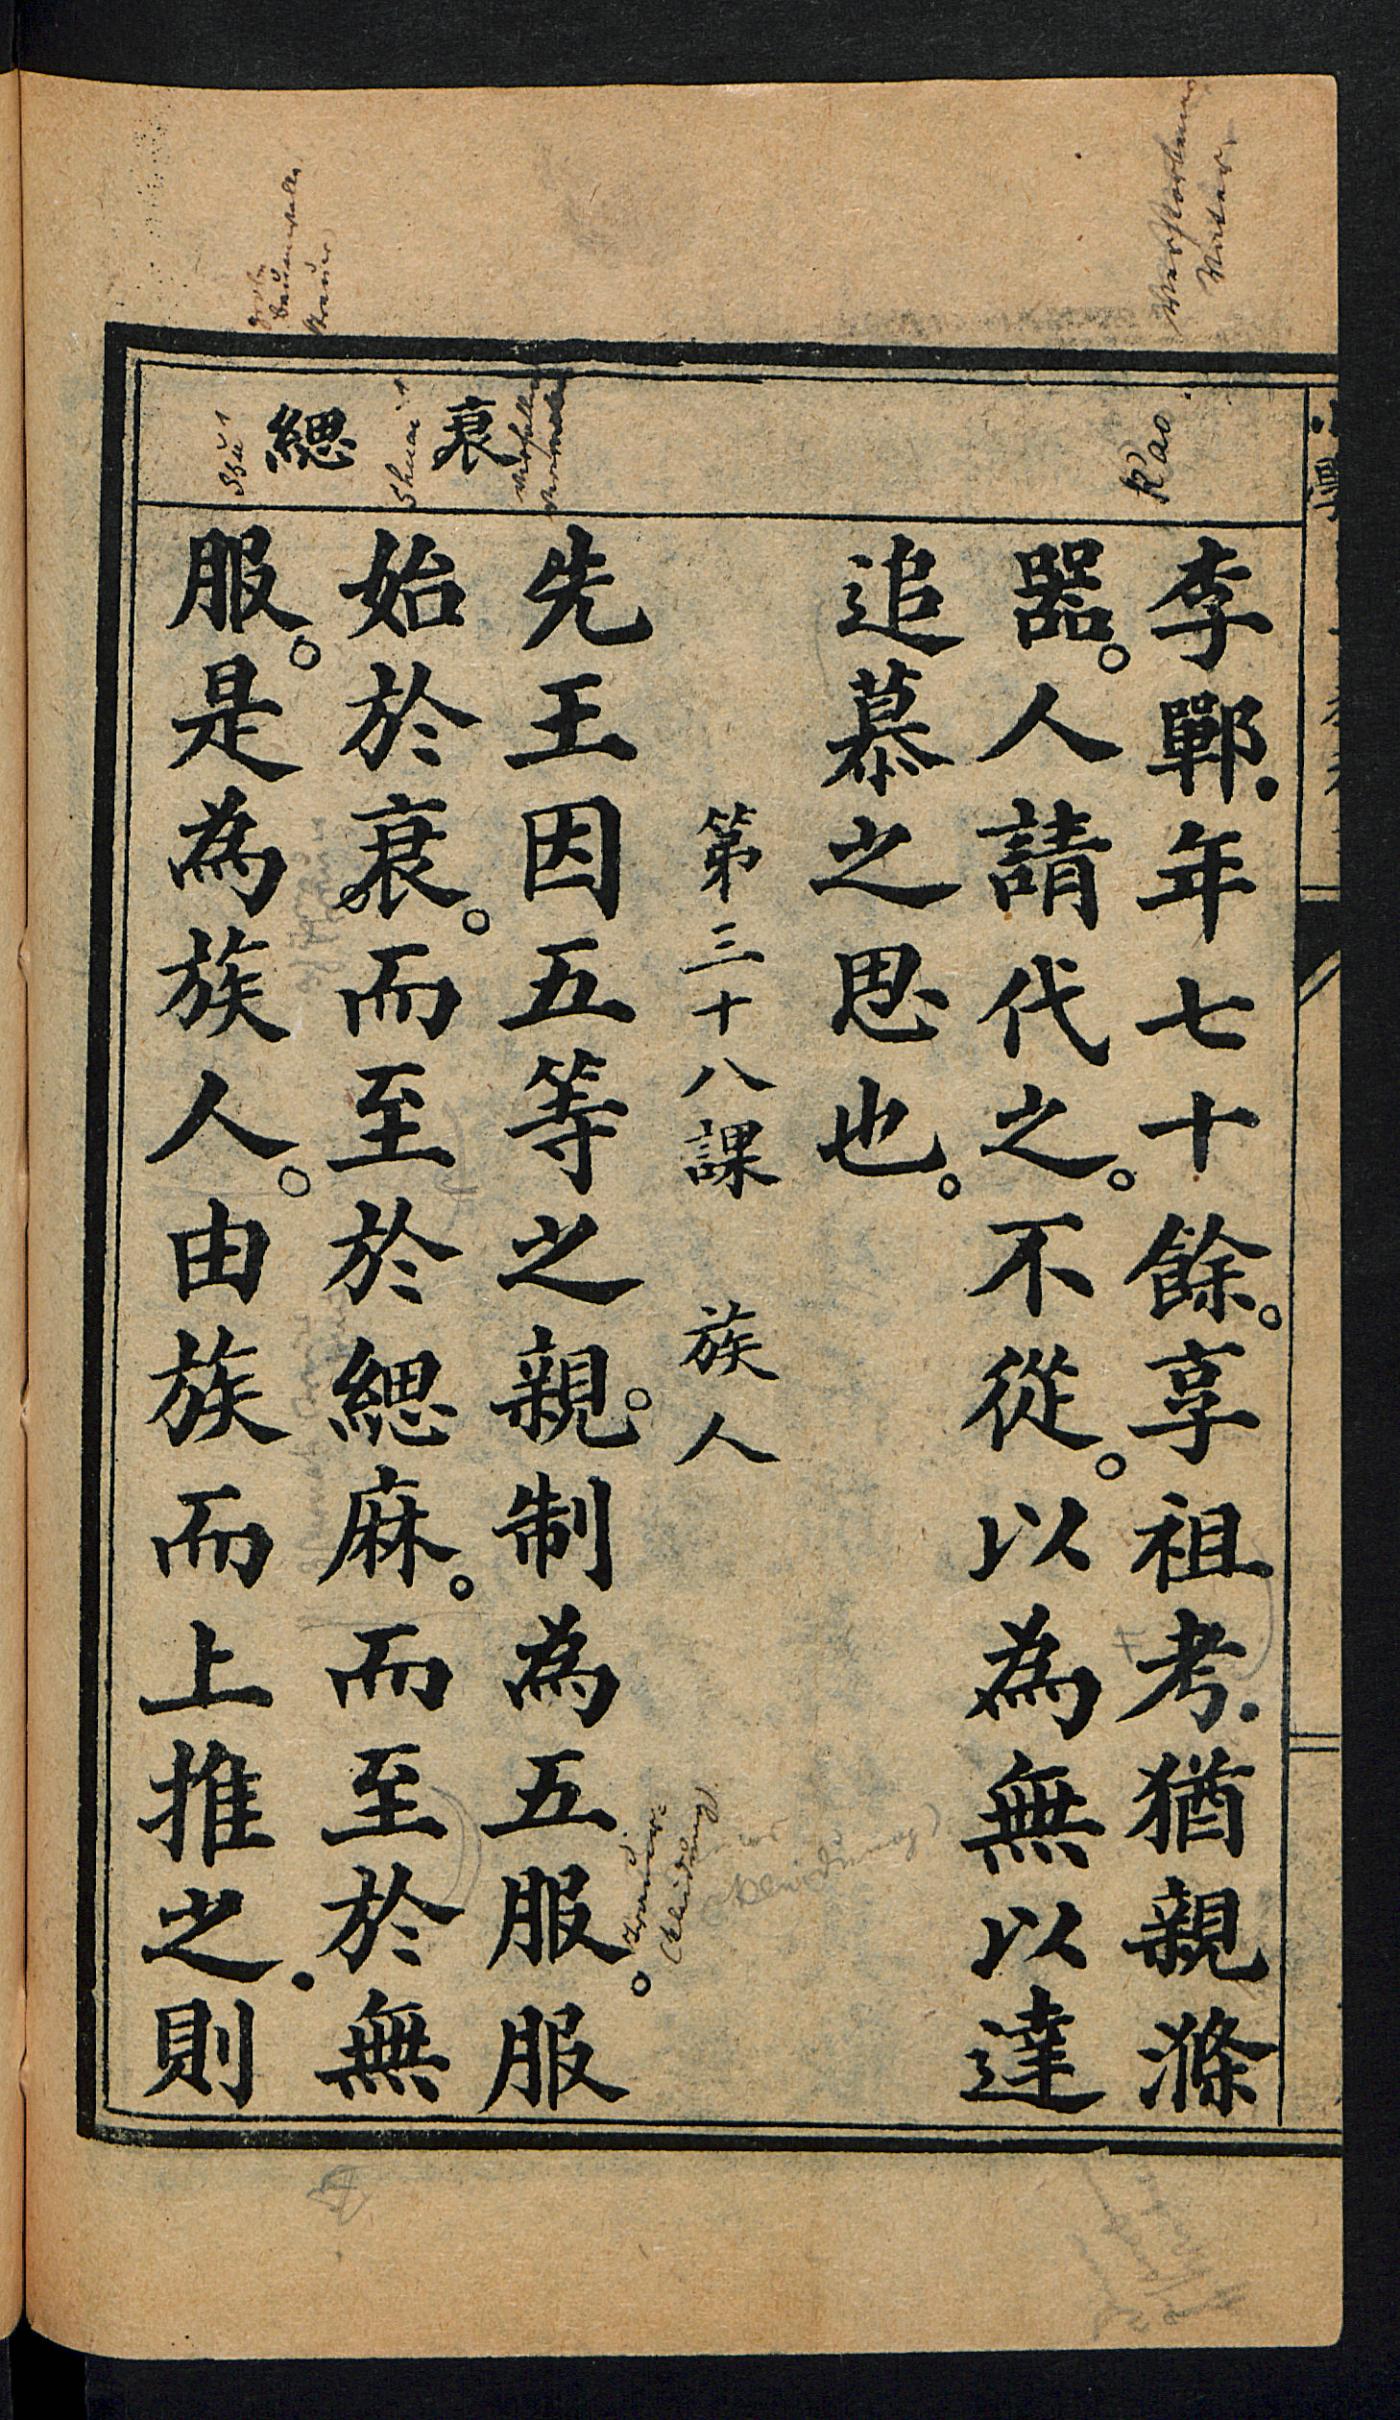 衰
緦
李鄲.年七十餘。享祖考.猶親滌
器。人請代之。不從。以為無以達
追慕之思也。
第三十八課　族人
先王因五等之親。制為五服。服
始於衰。而至於緦麻。而至於無
服。是為族人。由族而上推之.則
Kao
Verstorbener
Vater
Shuai
Trauer-
kleidung